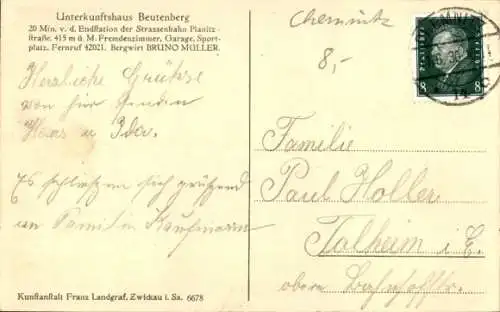 Unterkunftshaus Beutenberg
20 Min. v. d. Endstation der Strassenbahn Planitz-
straße. 415 m ü. M. Fremdenzimmer, Garage, Sport-
platz. Fernruf 42021. Bergwirt BRUNO MÜLLER.
Chemnitz
8,-
8 8
Herzliche Grüsse
von hier senden
u Ida.
Es schließen sich grüßend
an Familie Kaufmann
Familie
Paul Holler
Talheim i. E.
obere Bahnhofstr.
Kunstanstalt Franz Landgraf, Zwickau i. Sa. 6678